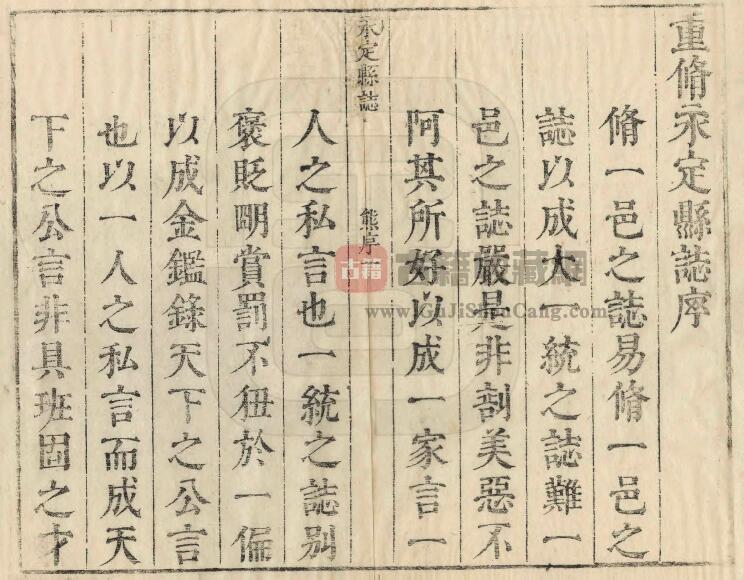 重脩永定縣誌序
脩一邑之誌易脩一邑之
誌以成大一統之誌難一
邑之誌嚴是非剖美惡不
阿其所好以成一家言一
永定縣誌
熊序
人之私言也一統之誌別
褒貶明賞罰不狃於一偏
以成金鑑錄天下之公言
也以一人之私言而成天
下之公言非具班固之才
古籍
古籍收藏網
www.GuJiShouCang.com